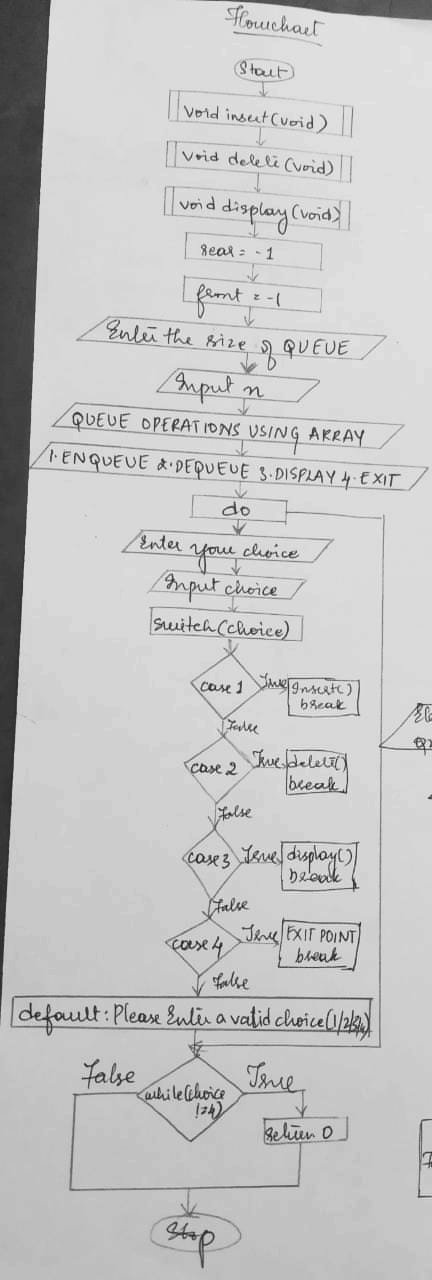 Flowchart
Start
void insert(void)
void delete(void)
void display(void)
rear = -1
front = -1
Enter the size of QUEUE
Input n
QUEUE OPERATIONS USING ARRAY
1.ENQUEUE 2.DEQUEUE 3.DISPLAY 4.EXIT
do
Enter your choice
Input choice
switch(choice)
case 1
True
insert()
break
False
case 2
True
delete()
break
False
case 3
True
display()
break
False
case 4
True
EXIT POINT
break
False
default: Please Enter a valid choice(1/2/3/4)
False
while(choice
!=4)
True
return 0
Stop